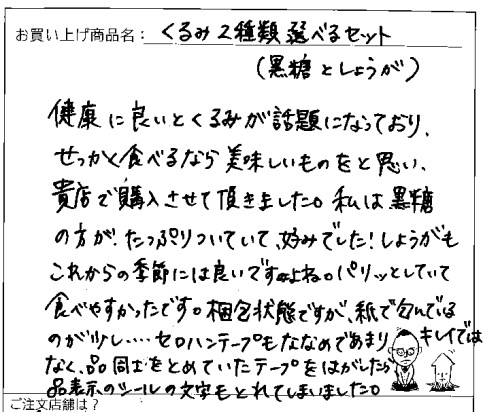 お買い上げ商品名：くるみ2種類選べるセット
（黒糖としょうが）
健康に良いとくるみが話題になっており、
せっかく食べるなら美味しいものをと思い、
貴店で購入させて頂きました。私は黒糖
の方が、たっぷりついていて、好みでした！しょうがも
これからの季節には良いですよね。パリッとしていて
食べやすかったです。梱包状態ですが、紙で包んでいる
のが少し‥‥セロハンテープもななめであまりキレイでは
なく、品同士をとめていたテープをはがしたら
品表示のシールの文字もとれてしまいました。
ご注文店舗は？